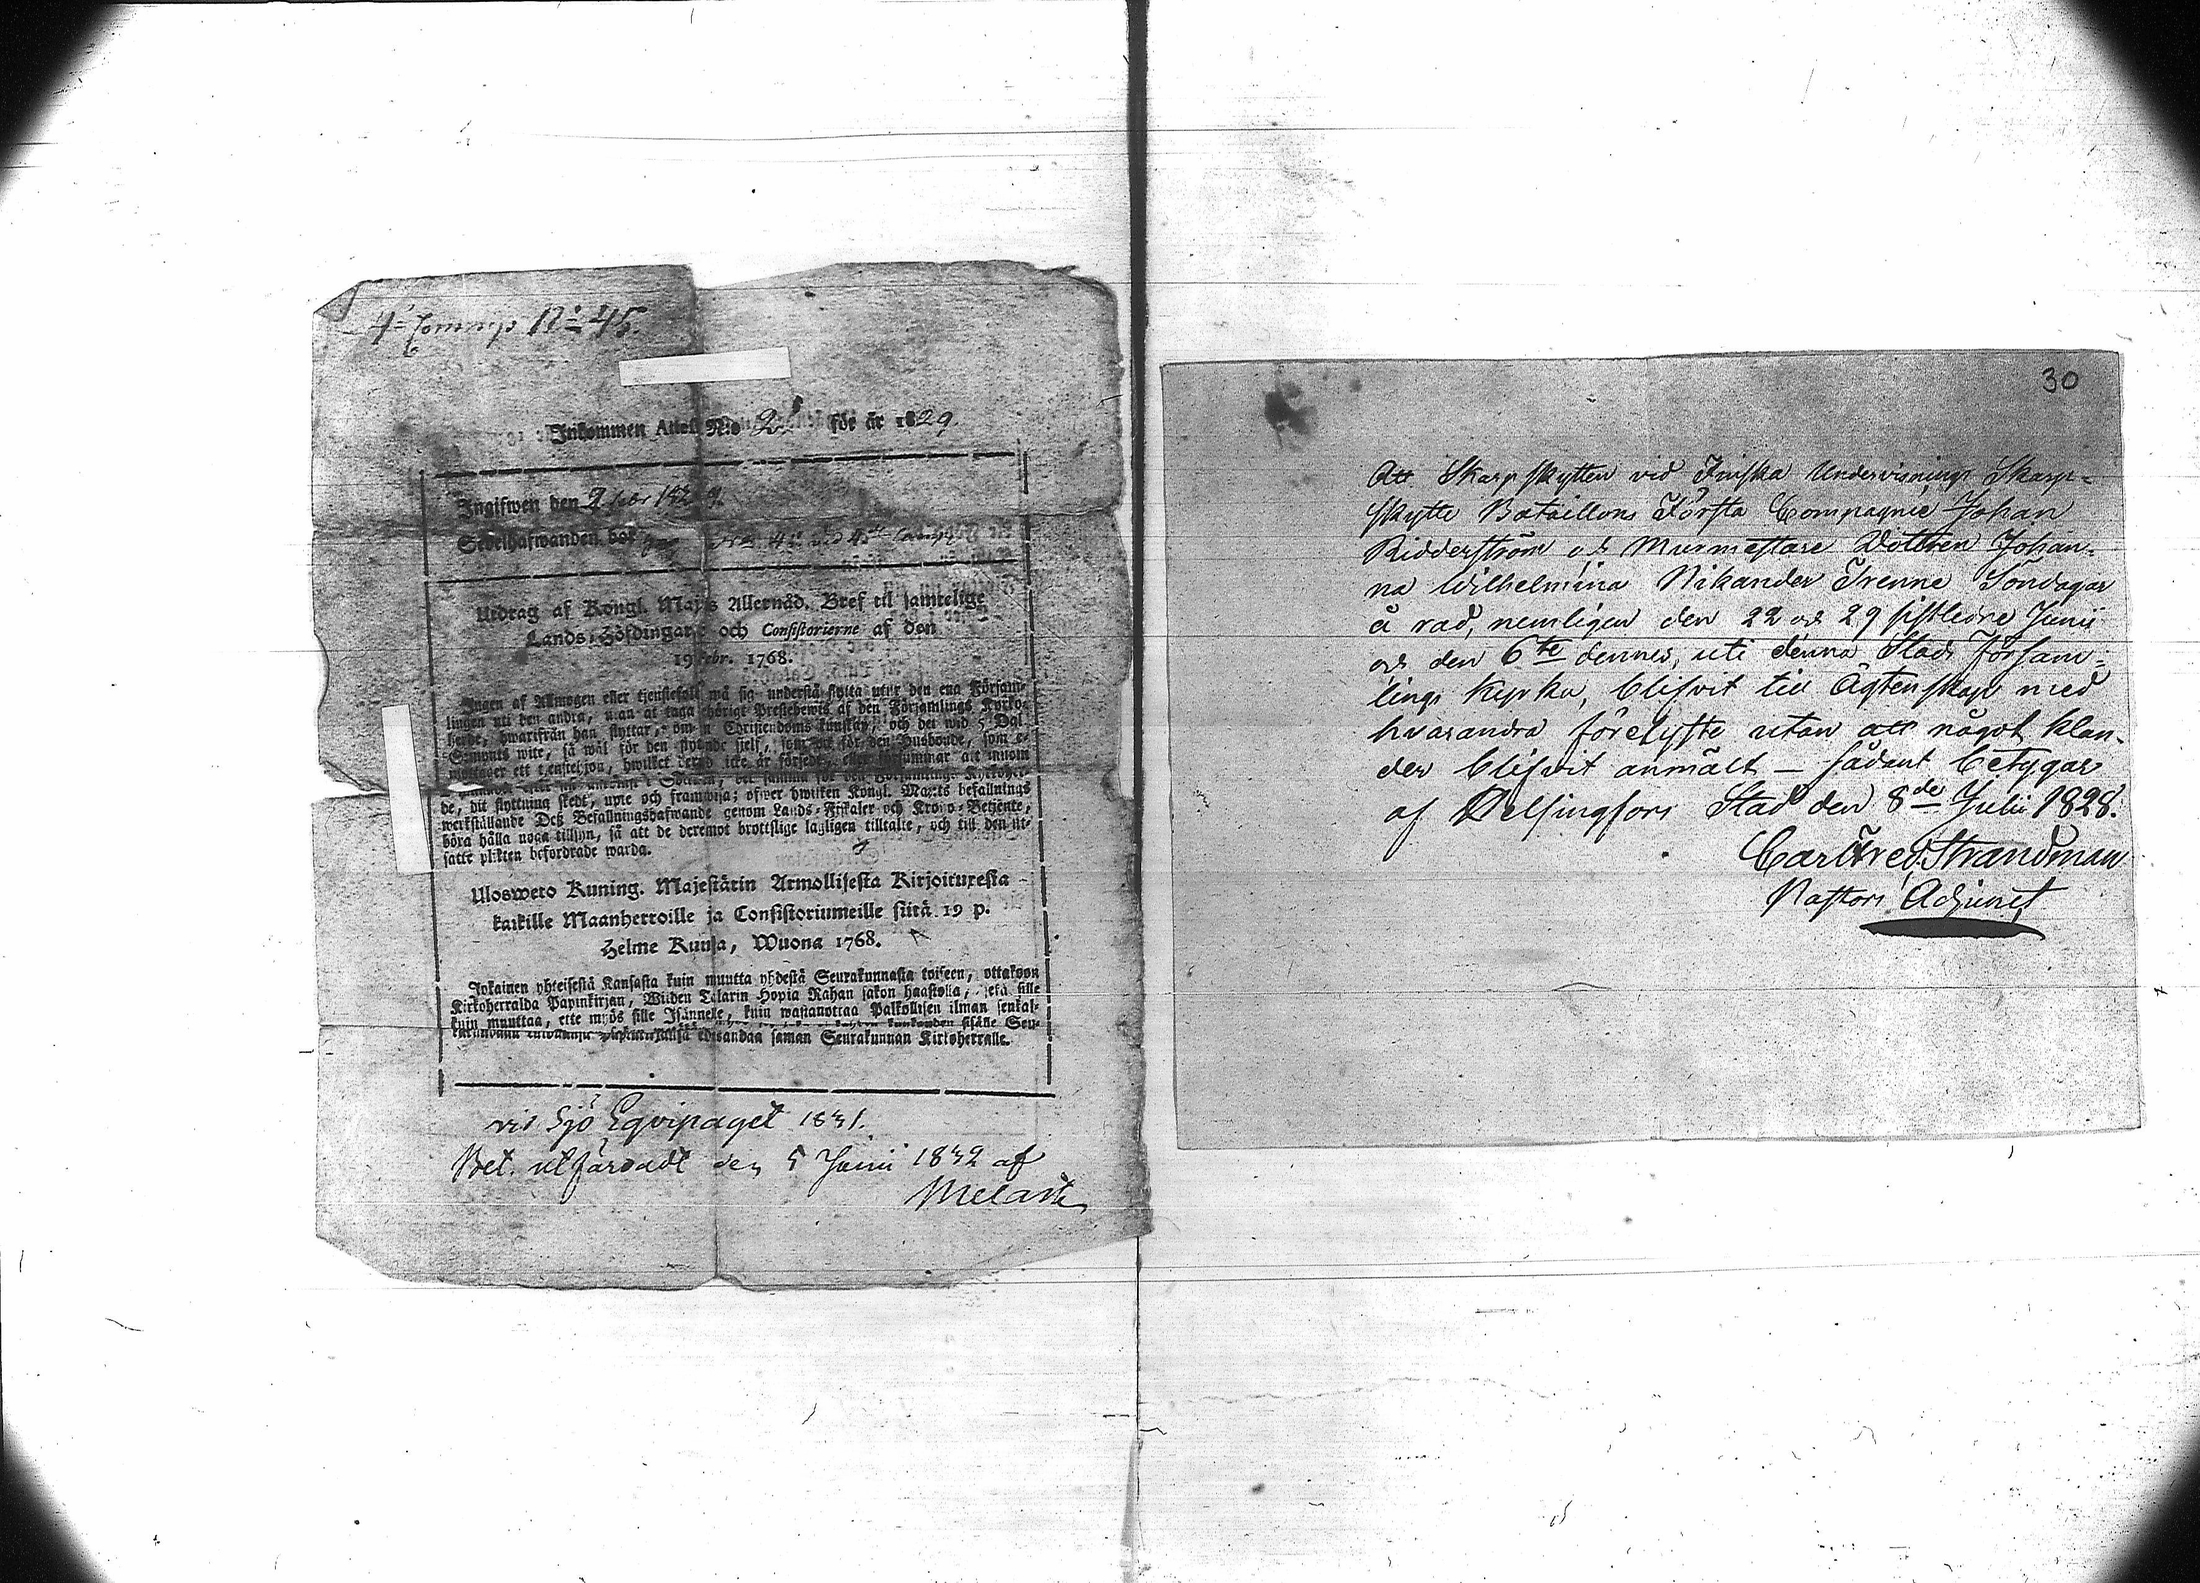 4 Comp N: 45.
Inkommen Attest N:o 2 för år 1829.
Ingifwen den 9 febr 1829.
Sedelhafwanden bor N: 45 vid 4 Comp
Utdrag af Kongl. Maj:ts Allernåd. Bref til samtelige
Lands-Höfdingar och Consistorierne af den
19 Febr. 1768.
Ingen af Allmogen eller tjenstefolk må sig understå flytta utur den ena Försam-
lingen uti den andra, utan at taga behörigt Prestebewis af den Församlings Kyrko-
herde, hwarifrån han flyttar, om sin Christendoms kunskap, och det wid 5 Dal.
S:mynts wite, så wäl för den flytande sjelf, som ock för den Husbonde, som e-
mottager ett tjenstehjon, hwilket dermed icke är försedt, eller försummar att innom
de, dit flyttning skedt, upte och framwisa; öfwer hwilken Kongl. Maj:ts befallnings
werkställande Deß Befallningshafwande genom Lands-Fiskaler och Krono-Betjente,
böra hålla noga tillsyn, så att de deremot brottslige lagligen tilltalte, och till den ut-
satte plikten befordrade warda.
Ulosweto Kuning. Majestätin Armollisesta Kirjoituxesta
kaikille Maanherroille ja Consistoriumeille siitä 19 p.
Helme Kuusa, Wuona 1768.
Jokainen yhteisestä Kansasta kuin muutta yhdestä Seurakunnasta toiseen, ottakoon
Kirkoherralda Papinkirjan, Wiiden Talarin Hopia Rahan sakon haastolla, sekä sille
kuin muuttaa, ette myös sille Isännelle, kuin wastanottaa Palkollisen ilman senkal-
kuukauden sisälle Seu-
edesandaa saman Seurakunnan Kirkoherralle.
vid Sjö Eqvipaget 1831.
Bet. utfärdadt den 5 Junii 1832 af
Melart
30
Att Skarpskytten vid Finska Undervisnings Skarp-
skytte Bataillons Första Compagnie Johan
Ridderström och Murmästare Dottren Johan-
na Wilhelmina Nikander Trenne Söndagar
å rad, nemligen den 22 och 29 sistledne Junii
och den 6te dennes, uti denna Stads Försam-
lings Kyrka, blifvit till Ägtenskap med
hvarandra förelyste utan att något klan-
der blifvit anmält – sådant betygar
af Helsingfors Stad den 8de Julii 1828.
Carl Fred. Strandman
Pastors Adjunct